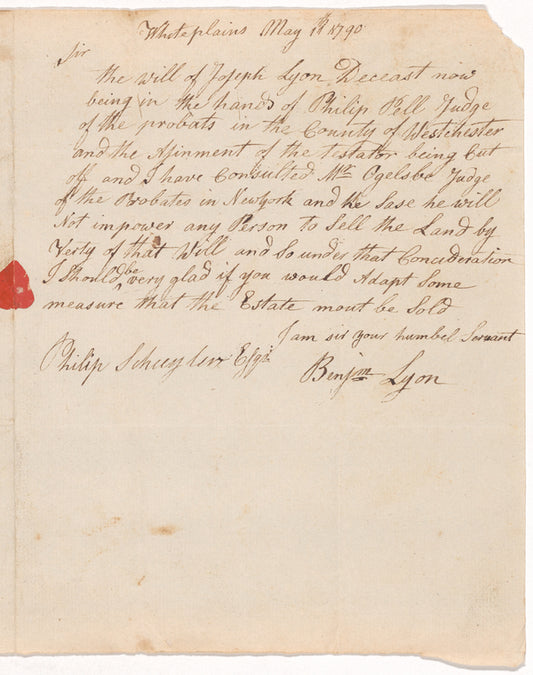 Whiteplains May 1st 1790
Sir
the will of Joseph Lyon Deceast now
being in the hands of Philip Pell Judge
of the probats in the County of Westchester
and the Asinment of the testator being Cut
off and I have Consulted Mr Ogelsbe Judge
of the Probates in Newyork and he Sase he will
Not impower any Person to Sell the Land by
Verty of that Will and So under that Concideration
I Should be very glad if you would Adapt Some
measure that the Estate mout be Sold
I am sir your humbel Servant
Philip Schuyler Esqr
Benjm Lyon